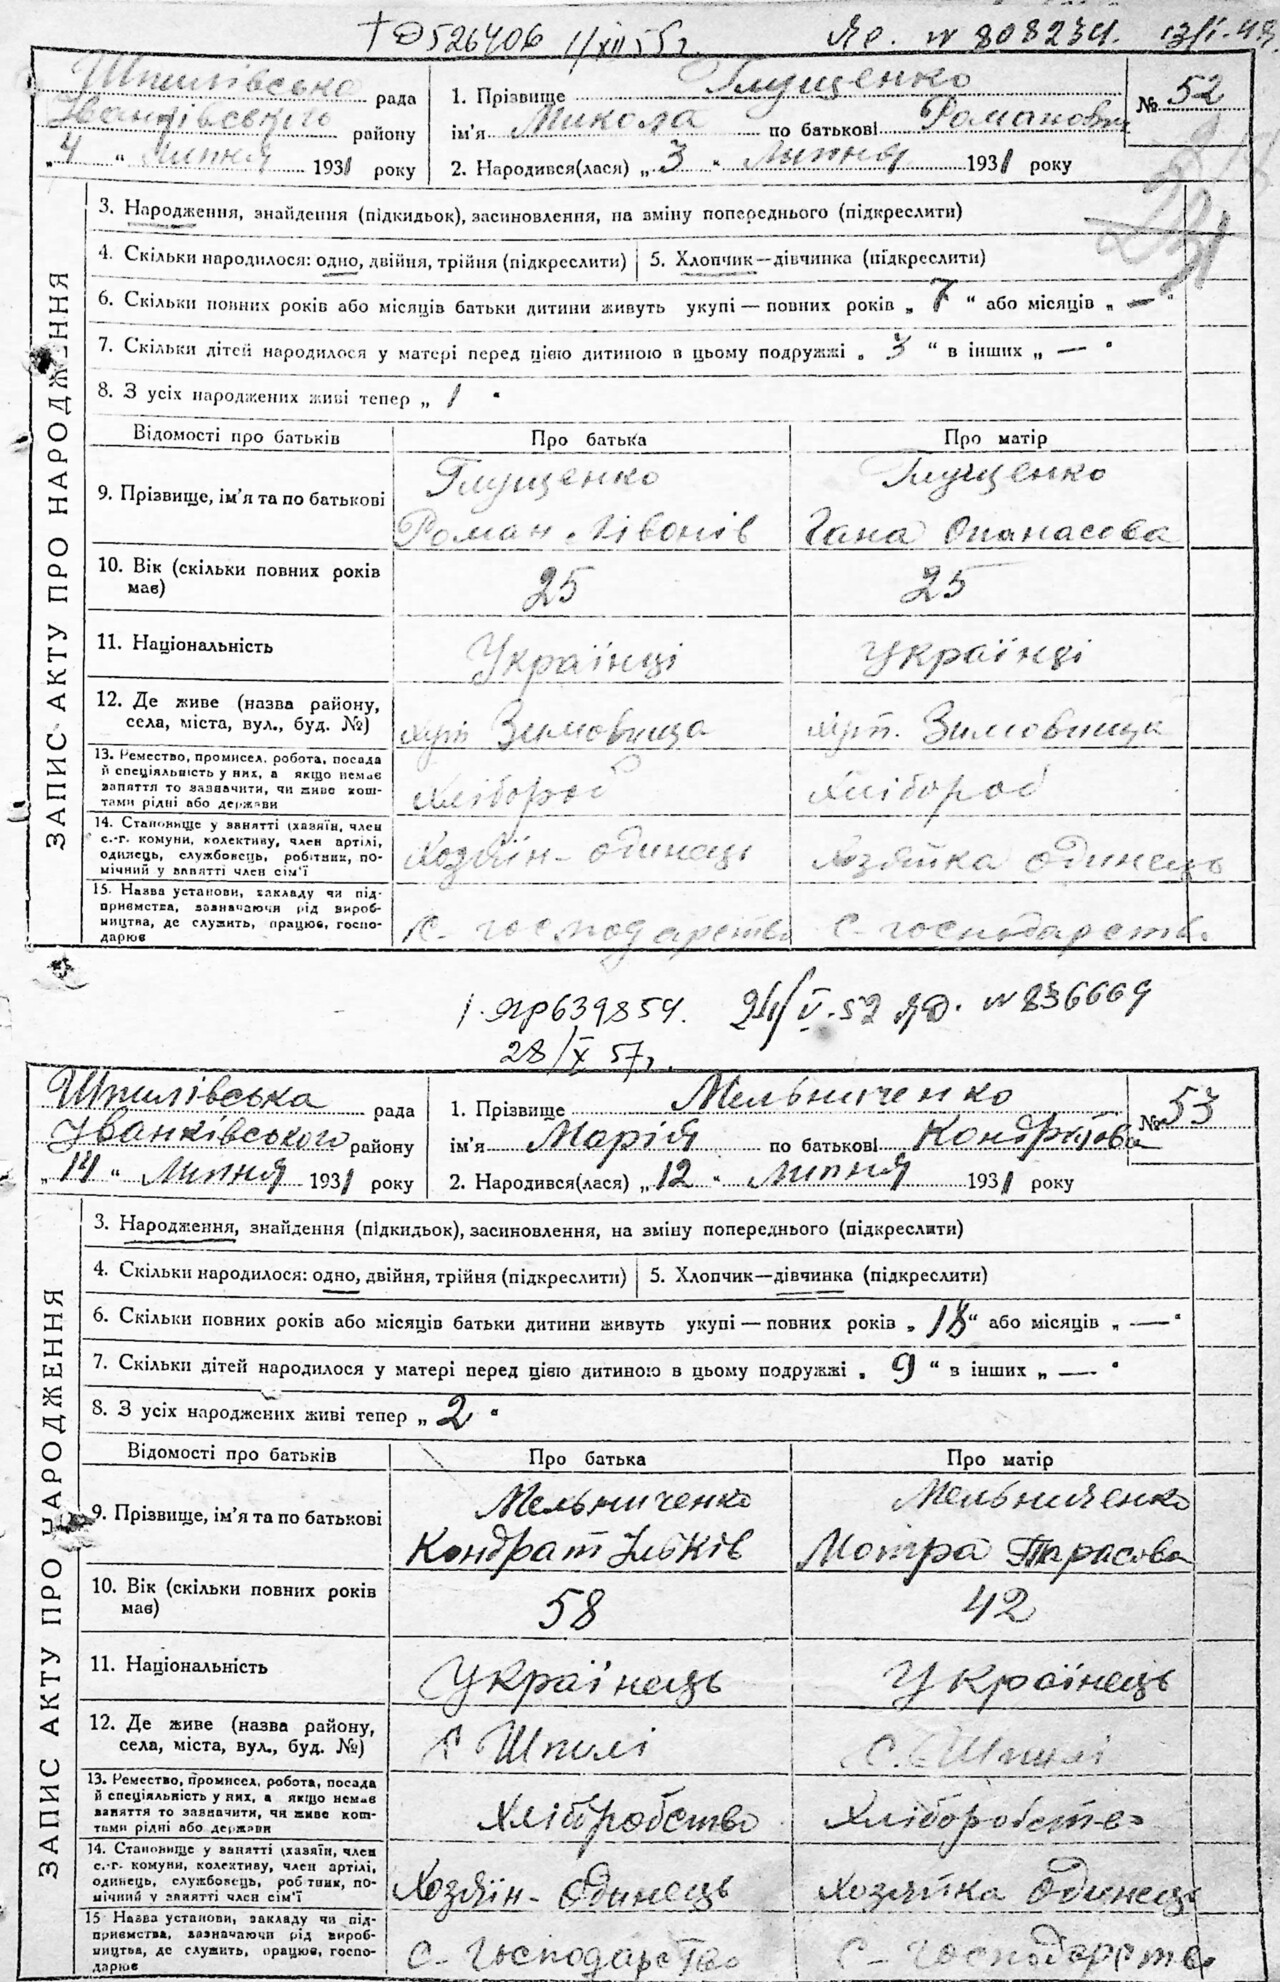 † Ф 526406 11/XII 55 г. Яе. № 808234. 13/I-49
Шпилівська рада
Іванківського району
„4“ Липня 1931 року
1. Прізвище Глущенко
ім'я Микола по батькові Романович
2. Народився(лася) „3“ Липня 1931 року
№ 52
ЗАПИС АКТУ ПРО НАРОДЖЕННЯ
3. Народження, знайдення (підкидьок), засиновлення, на зміну попереднього (підкреслити)
4. Скільки народилося: одно, двійня, трійня (підкреслити) 5. Хлопчик—дівчинка (підкреслити)
6. Скільки повних років або місяців батьки дитини живуть укупі — повних років „7“ або місяців „—“
7. Скільки дітей народилося у матері перед цією дитиною в цьому подружжі „3“ в інших „—“
8. З усіх народжених живі тепер „1“
Відомості про батьків Про батька Про матір
9. Прізвище, ім'я та по батькові
Глущенко Глущенко
Роман Лівонів Гана Опанасова
10. Вік (скільки повних років має) 25 25
11. Національність Українці Українці
12. Де живе (назва району, села, міста, вул., буд. №)
хут. Зимовища хут. Зимовища
13. Ремество, промисел, робота, посада
й спеціяльність у них, а якщо немає
заняття то зазначити, чи живе кош-
тами рідні або держави
Хлібороб Хлібороб
14. Становище у занятті (хазяїн, член
с.-г. комуни, колективу, член артілі,
одинець, службовець, робітник, по-
мічний у занятті член сім'ї
Хозяїн-одинець Хозяйка одинець
15. Назва установи, закладу чи під-
приємства, зазначаючи рід вироб-
ництва, де служить, працює, госпо-
дарює
С-господарство С-господарство
1-ЯГР639854. 24/V-52 ЯФ. № 836669
28/X 57 г.
Шпилівська рада
Іванківського району
„14“ Липня 1931 року
1. Прізвище Мельниченко
ім'я Марія по батькові Кондратова
2. Народився(лася) „12“ липня 1931 року
№ 53
ЗАПИС АКТУ ПРО НАРОДЖЕННЯ
3. Народження, знайдення (підкидьок), засиновлення, на зміну попереднього (підкреслити)
4. Скільки народилося: одно, двійня, трійня (підкреслити) 5. Хлопчик—дівчинка (підкреслити)
6. Скільки повних років або місяців батьки дитини живуть укупі — повних років „18“ або місяців „—“
7. Скільки дітей народилося у матері перед цією дитиною в цьому подружжі „9“ в інших „—“
8. З усіх народжених живі тепер „2“
Відомості про батьків Про батька Про матір
9. Прізвище, ім'я та по батькові
Мельниченко Мельниченко
Кондрат Ільків Мотра Тарасова
10. Вік (скільки повних років має) 58 42
11. Національність Українець Українець
12. Де живе (назва району, села, міста, вул., буд. №)
с Шпилі с. Шпилі
13. Ремество, промисел, робота, посада
й спеціяльність у них, а якщо немає
заняття то зазначити, чи живе кош-
тами рідні або держави
Хліборобство Хліборобство
14. Становище у занятті (хазяїн, член
с.-г. комуни, колективу, член артілі,
одинець, службовець, робітник, по-
мічний у занятті член сім'ї
Хозяїн-Одинець Хозяйка Одинець
15 Назва установи, закладу чи під-
приємства, зазначаючи рід вироб-
ництва, де служить, працює, госпо-
дарює
С-Господарство С-Господарство